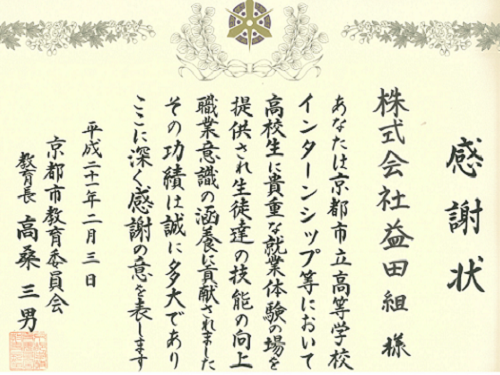 感謝状
株式会社益田組 様
あなたは京都市立高等学校
インターンシップ等において
高校生に貴重な就業体験の場を
提供され生徒達の技能の向上
職業意識の涵養に貢献されました
その功績は誠に多大であり
ここに深く感謝の意を表します
平成二十一年二月三日
京都市教育委員会
教育長 高桑三男